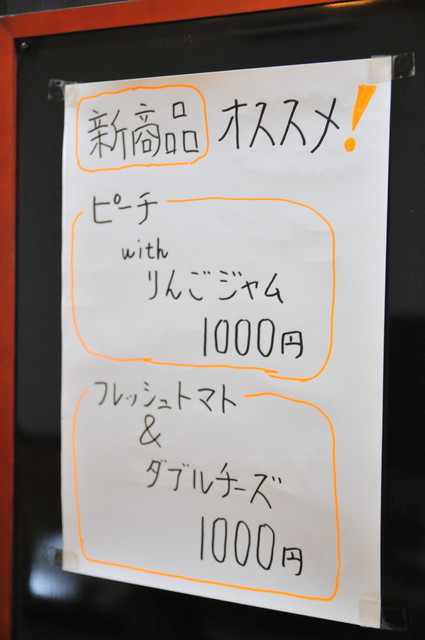 新商品 オススメ!
ピーチ
with
りんごジャム
1000円
フレッシュトマト
&
ダブルチーズ
1000円